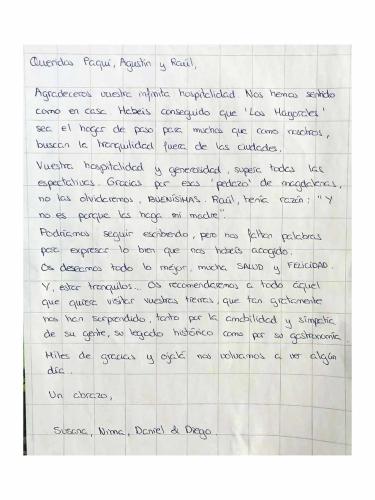 Queridos Paqui, Agustín y Raúl,
Agradeceros vuestra infinita hospitalidad. Nos hemos sentido
como en casa. Habéis conseguido que 'Los
sea el hogar de paso para muchos que como nosotros,
buscan la tranquilidad fuera de las ciudades.
Vuestra hospitalidad y generosidad, supera todas las
espectativas. Gracias por esas 'pedazo' de magdalenas,
no las olvidaremos, BUENÍSIMAS. Raúl, tenía razón: "Y
no es porque las haga mi madre".
Podríamos seguir escribiendo, pero nos faltan palabras
para expresar lo bien que nos habéis acogido.
Os deseamos todo lo mejor, mucha SALUD y FELICIDAD.
Y, estar tranquilos... Os recomendaremos a todo aquel
que quiera visitar vuestras tierras, que tan gratamente
nos han sorprendido, tanto por la amabilidad y simpatía
de su gente, su legado histórico como por su gastronomía.
Miles de gracias y ojalá nos volvamos a ver algún
día.
Un abrazo,
Susana, Nima, Daniel & Diego.